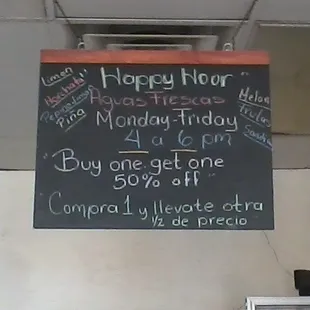 Limon
Horchata
Piña
"Happy Hour"
Aguas Frescas
Monday-Friday
4 a 6 pm
Melon
"Buy one get one
50% off"
"Compra 1 y llevate otra
1/2 de precio"